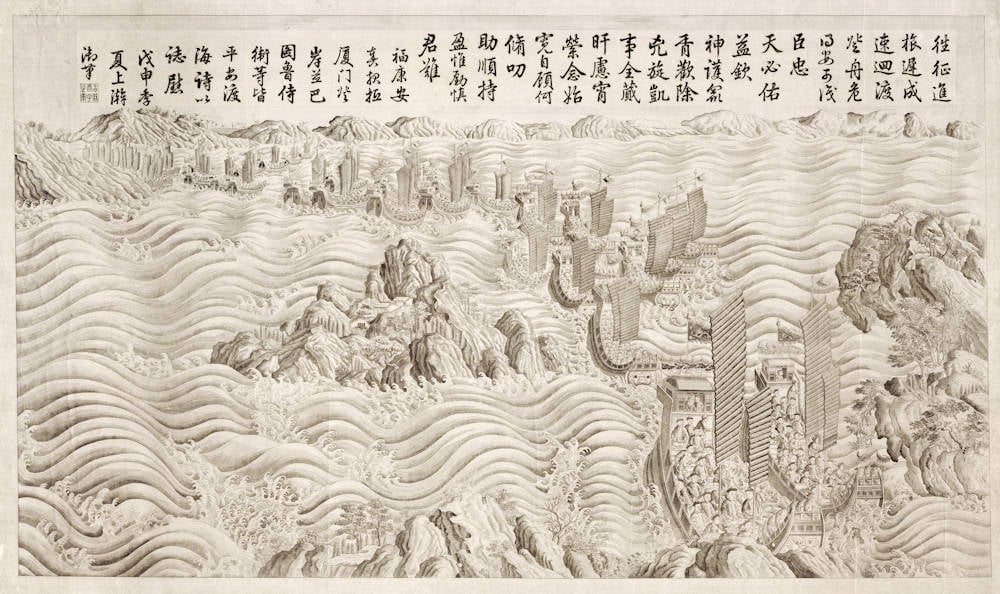 往征進
旅遲成
速迴渡
登舟危
得安可識
臣忠
天必佑
益欽
神護衆
胥歡除
兇旋凱
事全蕆
旰慮宵
縈念始
寬自顧何
脩叨
助順持
盈惟勵慎
君難
福康安
奏報抵
厦門登
岸並巴
圖魯侍
衛等皆
平安渡
海詩以
誌慰
戊申季
夏上澣
御筆